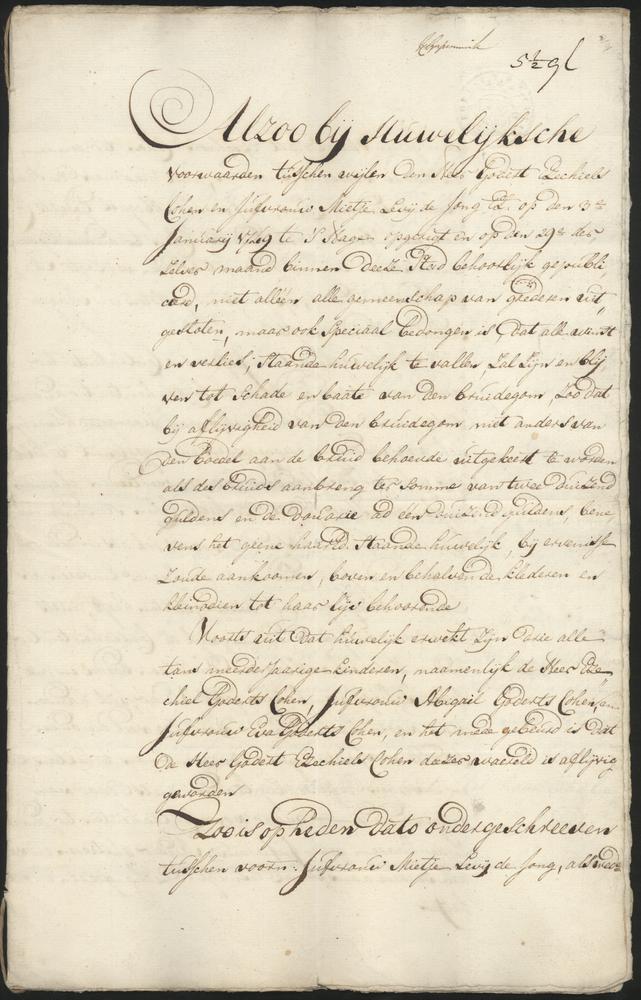 5½ gl
Alzoo bij Huwelyksche
voorwaarden tusschen wijlen den Heer Godert Ezechiels
Cohen en Jufvrouw Mietje Levij de Jong op den 3e
Januarij 1769 te S'Hage opgerigt en op den 29e der
zelver maand binnen deeze Stad behoorlijk gepubli
ceerd, niet alléén alle gemeenschap van goederen uit
gesloten, maar ook speciaal bedongen is, dat alle winst
en verlies, staande huwelijk te vallen, zal zijn en blij
ven tot schade en baate van den bruidegom, zoo dat
bij aflijvigheid van den bruidegom niet anders van
den boedel aan de bruid behoerde uitgekeert te worden
als des bruids aanbreng ter somme van twee duizend
guldens en de douarie ad één duizend guldens, bene
vens het geene haar Ed. staande huwelijk, bij ervenisse
zoude aankoomen, boven en behalven de klederen en
kleinodien tot haar lijv behoorende
Voorts uit dat huwelijk erwekt zijn drie alle
tans meerderjaarige kinderen, naamenlijk de Heer Eze
chiel Goderts Cohen, Jufvrouw Abigail Goderts Cohen, en
Jufvrouw Eva Goderts Cohen, en het mede gebeurd is dat
de Heer Godert Ezechiels Cohen deezer waereld is aflijvig
geworden
Zoo is op heden dato ondergeschreeven
tusschen voorn: Jufvrouw Mietje Levij de Jong, als wed: